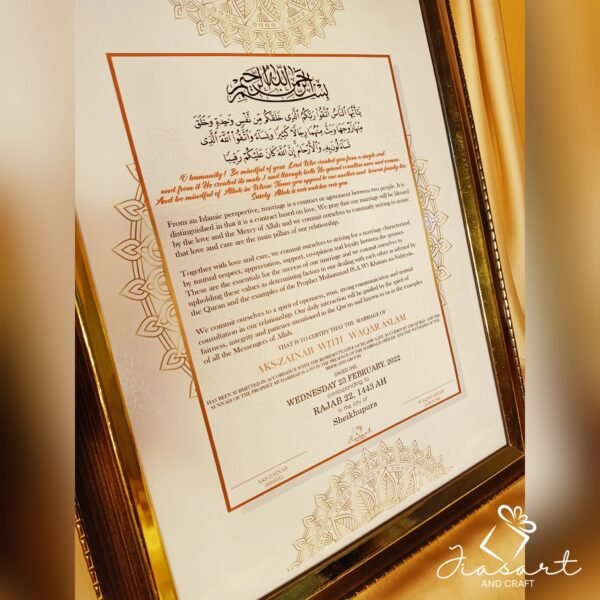 بسم الله الرحمن الرحيم
يَٰٓأَيُّهَا ٱلنَّاسُ ٱتَّقُوا۟ رَبَّكُمُ ٱلَّذِى خَلَقَكُم مِّن نَّفْسٍ وَٰحِدَةٍ وَخَلَقَ
مِنْهَا زَوْجَهَا وَبَثَّ مِنْهُمَا رِجَالًا كَثِيرًا وَنِسَآءً وَٱتَّقُوا۟ ٱللَّهَ ٱلَّذِى
تَسَآءَلُونَ بِهِۦ وَٱلْأَرْحَامَ إِنَّ ٱللَّهَ كَانَ عَلَيْكُمْ رَقِيبًا
O humanity! Be mindful of your Lord Who created you from a single soul,
and from it He created its mate, and through both He spread countless men and women.
And be mindful of Allah in Whose Name you appeal to one another and honour family ties
Surely Allah is ever watchful over you.
From an Islamic perspective, marriage is a contract or agreement between two people. It is
distinguished in that it is a contract based on love. We pray that our marriage will be blessed
by the love and the Mercy of Allah and we commit ourselves to constantly striving to assure
that love and care are the main pillars of our relationship.
Together with love and care, we commit ourselves to striving for a marriage characterized
by mutual respect, appreciation, support, co-opation and loyalty between the spouses.
These are the essentials for the success of our marriage and we commit ourselves to
upholding these values as determining factors in our dealing with each other as advised by
the Quran and the examples of the Prophet Mohammad (S.A.W) Khatam an-Nabiyin.
We commit ourselves to a spirit of openness, trust, strong communication and mutual
consultation in our relationship. Our daily interaction will be guided by the spirit of
fairness, integrity and patience mentioned in the Qur'an and known to us in the examples
of all the Messengers of Allah.
THAT IS TO CERTIFY THAT THE MARRIAGE OF
AKS-ZAINAB WITH WAQAR ASLAM
HAS BEEN SUBMITTED IN ACCORDANCE WITH THE REPRESENTATIVE OF ISLAMIC LAW, AS GUIDED BY THE QURAN AND THE
SUNNAH OF THE PROPHET MUHAMMAD (S.A.W) IN THE PRESENCE OF THE MARRIAGE OFFICER AND THE WITNESSES OF THE
BRIDE AND GROOM
DATED this
WEDNESDAY 23 FEBRUARY, 2022
corresponding to
RAJAB 22, 1443 AH
in the city of
Sheikhupura
Jiasart
AKS-ZAINAB
(BRIDE)
WAQAR ASLAM
(GROOM)
Jiasart
AND CRAFT